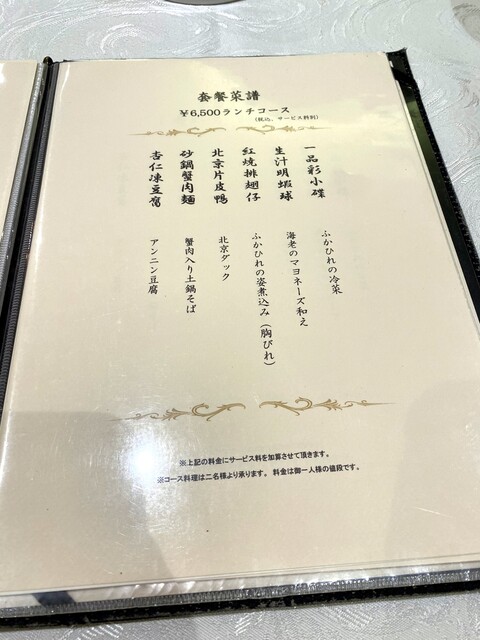 套餐菜譜
¥6,500ランチコース
(税込、サービス料別)
一品彩小碟
生汁明蝦球
紅燒排翅仔
北京片皮鴨
砂鍋蟹肉麺
杏仁凍豆腐
ふかひれの冷菜
海老のマヨネーズ和え
ふかひれの姿煮込み(胸びれ)
北京ダック
蟹肉入り土鍋そば
アンニン豆腐
※上記の料金にサービス料を加算させて頂きます。
※コース料理は二名様より承ります。 料金は御一人様の値段です。